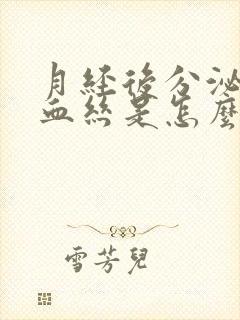 月經後分泌
血絲是怎麼
雪芳兒